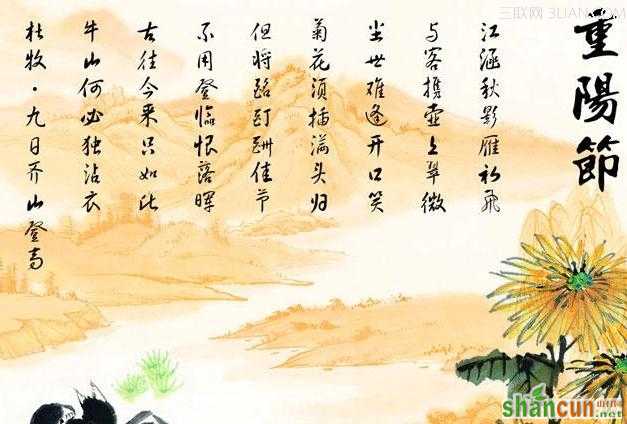 三联网 3LIAN.COM
重陽節
江涵秋影雁初飛
与客携壶上翠微
尘世难逢开口笑
菊花须插满头归
但将酩酊酬佳节
不用登临恨落晖
古往今来只如此
牛山何必独沾衣
杜牧·九日齐山登高
shancun